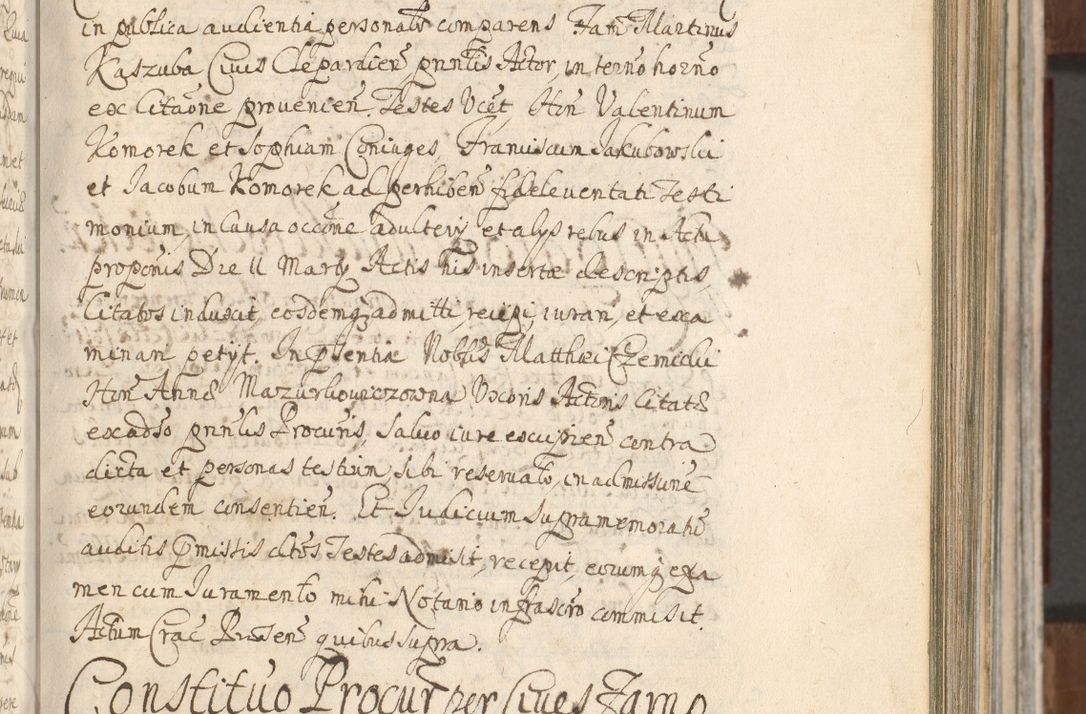 in publica audientia personalr comparens Fam Martinus
Kaszuba Civis Clepardien pnnlis Actor, in termo horno
ex Citaone provenien. Testes Vcet Hon Valentinum
Komorek et Sophiam Coniuges Franciscum Jakubowski
et Jacobum Komorek ad perhiben fideleveritati Testi
monium, in Causa occone adulterij et alys rebus in Actu
proponis Die 11 Marty Actis his insertæ descriptis,
Citatos induxit, eosdemq admitti, recipi, iurari, et exa
minari petijt. In pntentia Noblis Matthæi Czemicki
Hon Annæ Mazurkowiczowna Uxoris Actoris Citatæ
ex adso pnnlis Procuris, salvo iure excipien contra
dicta et personas testium, sibi reservato, in admissione
eorundem consentien. Et Iudicium supramemoratu
auditis pmissis dtos Testes admisit, recepit, eorumq exa
men cum Iuramento mihi Notario infrascro commisit.
Actum Crac Præsen quibus supra.
Constituo Procur per Cives Famo